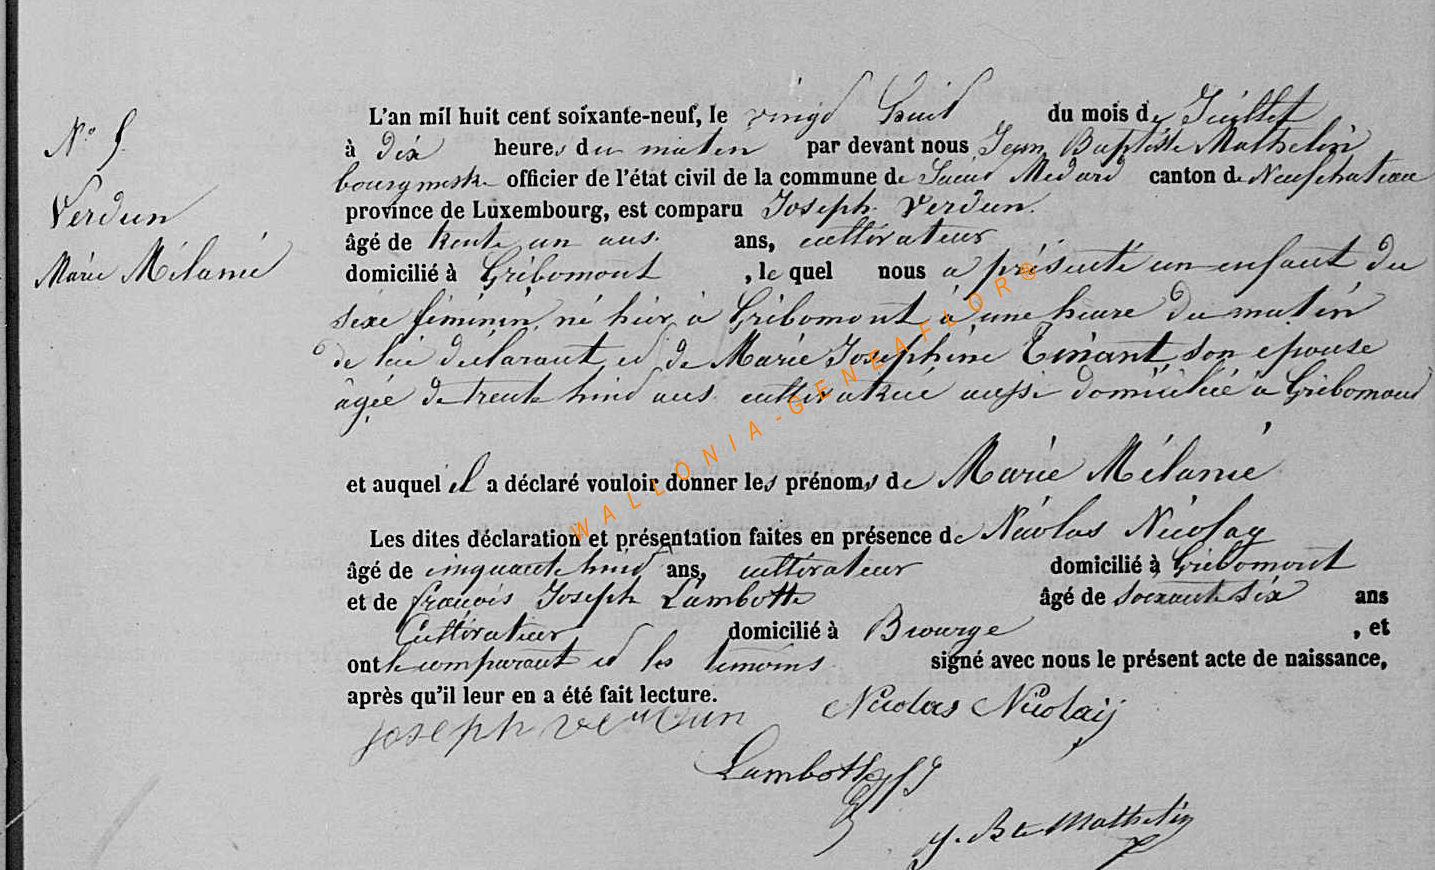 N° 5
Verdun
Marie Mélanie
L'an mil huit cent soixante-neuf, le vingt huit du mois de Juillet
à dix heures du matin par devant nous Jean Baptiste Mathelin
bourgmestre officier de l'état civil de la commune de Saint Médard canton de Neufchateau
province de Luxembourg, est comparu Joseph Verdun.
âgé de trente un ans. ans, cultivateur
domicilié à Gribomont , le quel nous a présenté un enfant du
sexe féminin, né hier à Gribomont à une heure du matin
de lui déclarant et de Marie Josephine Tinant son epouse
âgée de trente huit ans cultivatrice aussi domiciliée à Gribomont
et auquel il a déclaré vouloir donner les prénoms de Marie Mélanie
Les dites déclaration et présentation faites en présence de Nicolas Nicolay
âgé de cinquante huit ans, cultivateur domicilié à Gribomont
et de françois Joseph Lambotte âgé de soixante six ans
Cultivateur domicilié à , et
ont le comparant et les temoins signé avec nous le présent acte de naissance,
après qu'il leur en a été fait lecture.
joseph verdun Nicolas Nicolaij
Lambotte fj
J. Bte Mathelin
WALLONIA-GENEAFLOR®